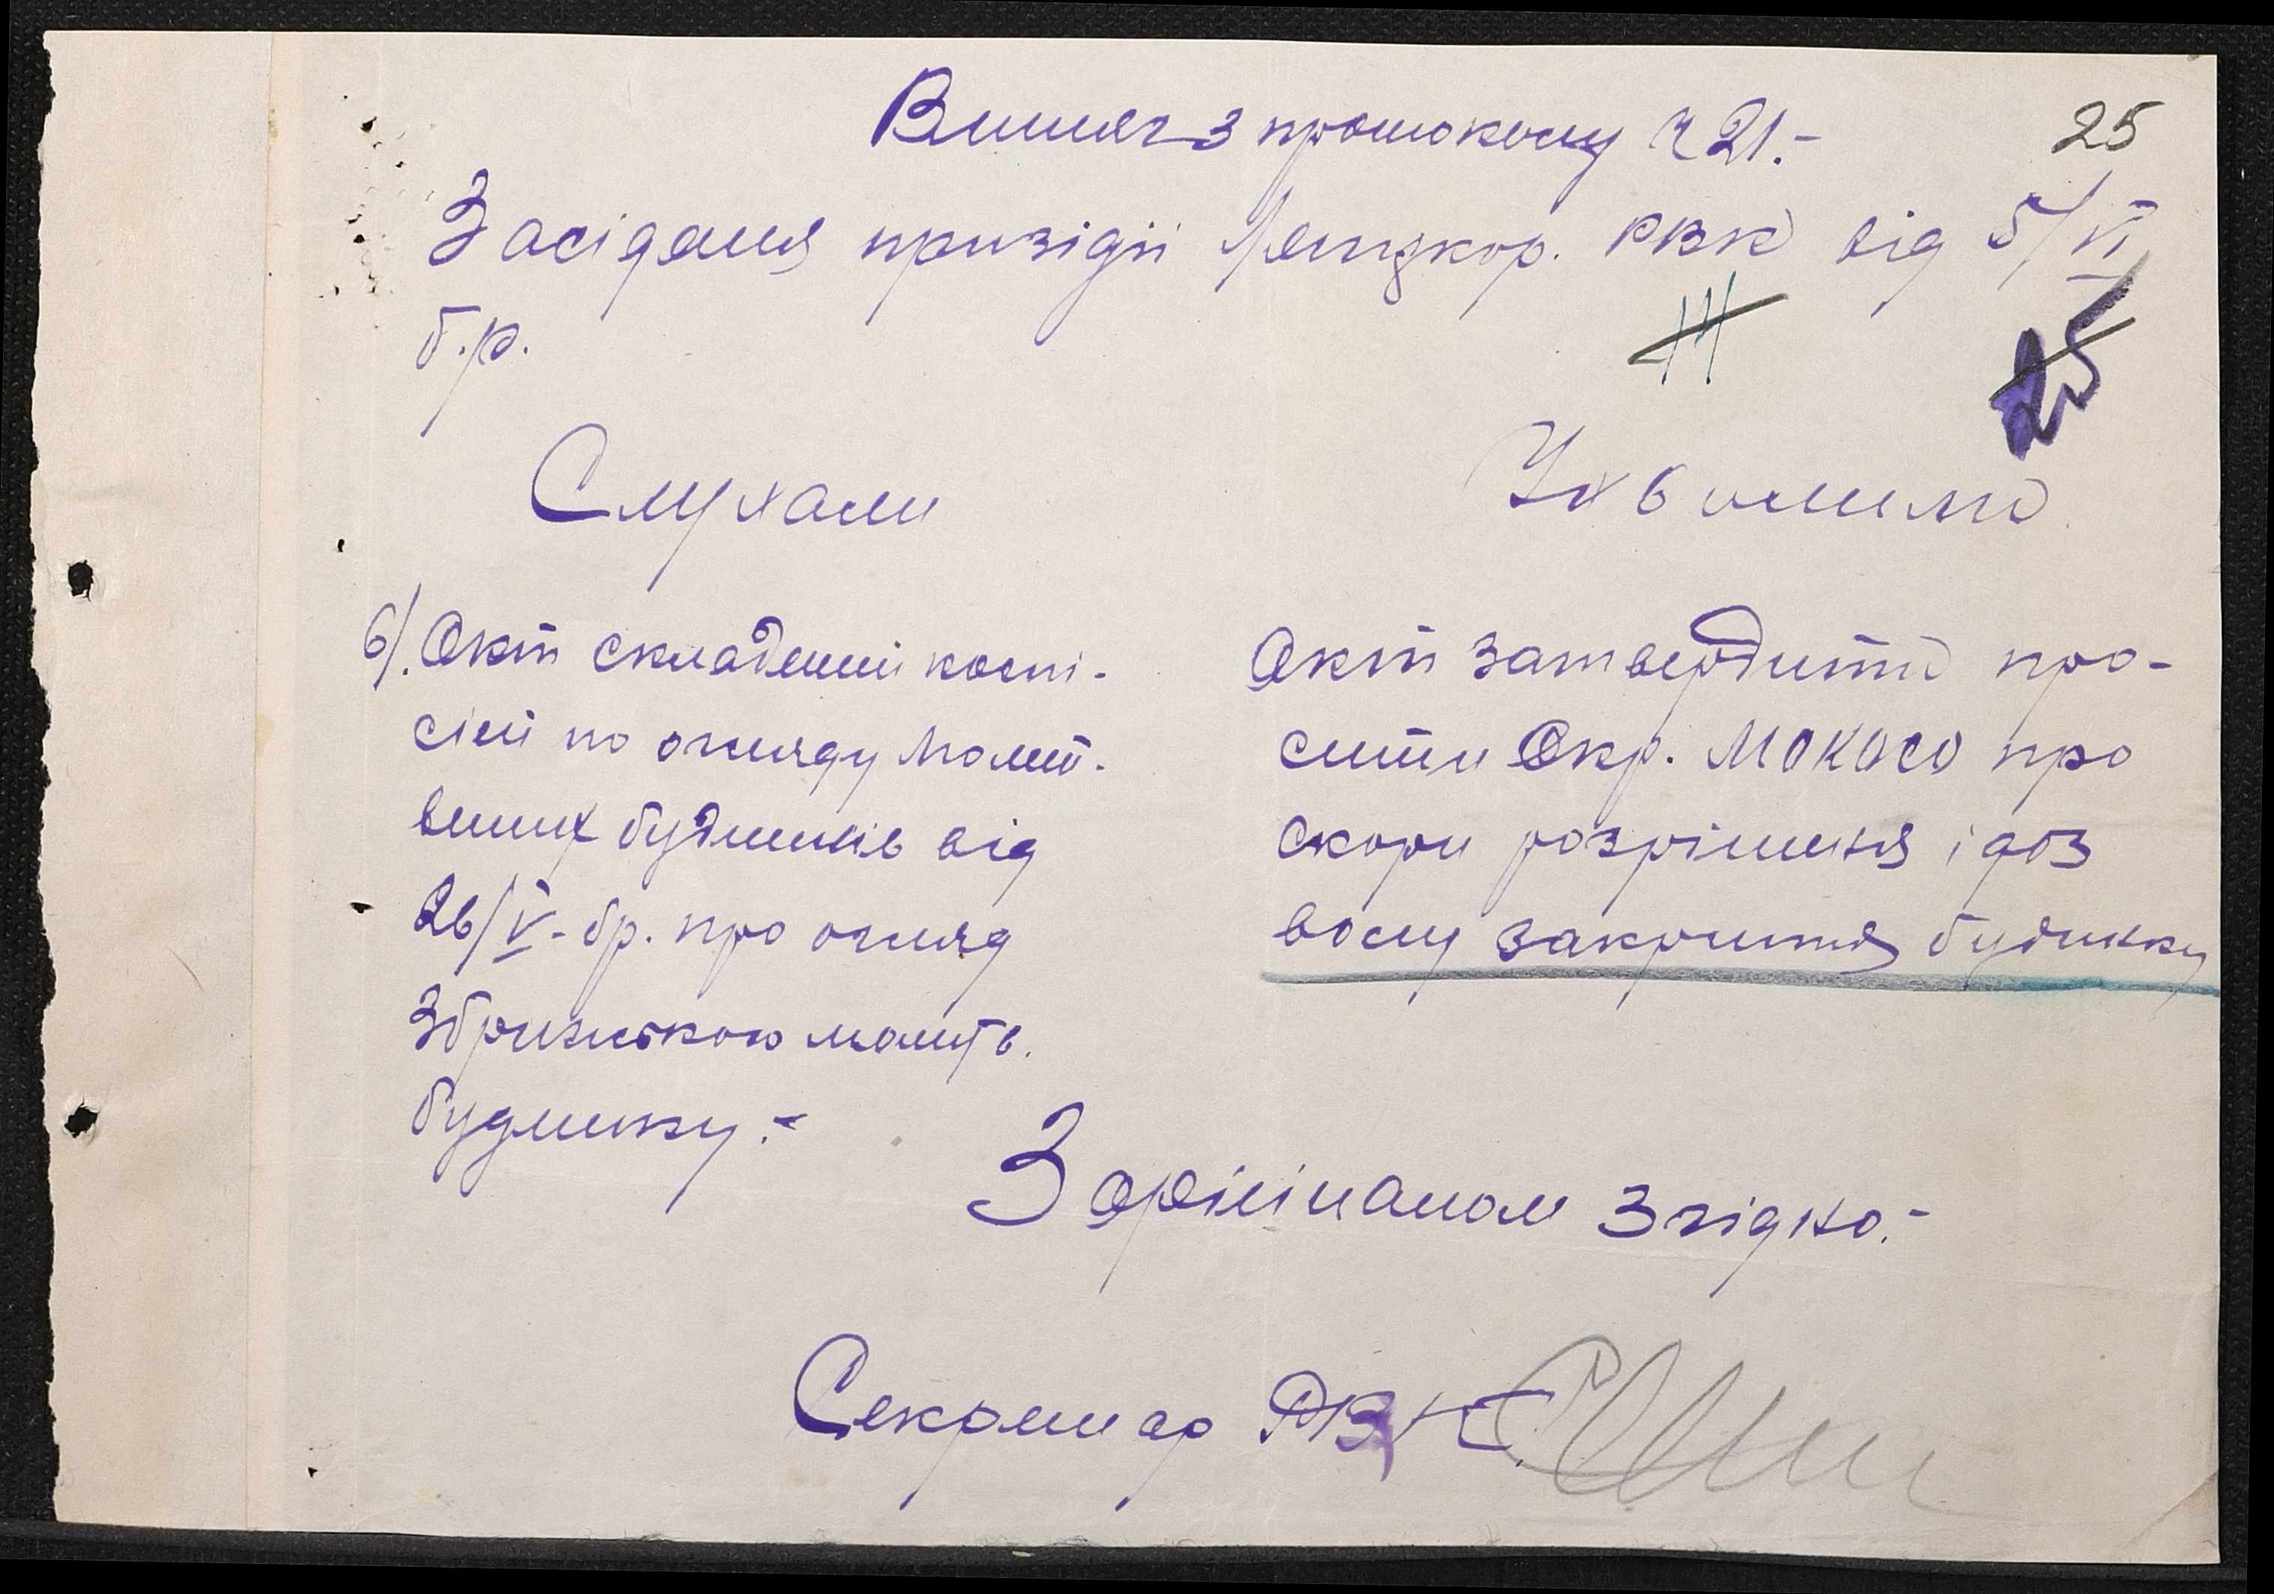 Витяг з протоколу ч 21.-
25
Засідання призідії Ляндскор. РВК від 5/VI
б.р.
14
25
Слухали
Ухвалили
6/. Акт складений комі-
сієй по огляду молит-
венних будинків від
26/V- бр. про огляд
Збризькою молитв.
будинку.-
Акт затвердити про-
сити Окр. МОКОСО про
скори розрішення і доз
волу закриття будинку
З орігіналом Згідно.-
Секретар РВК.